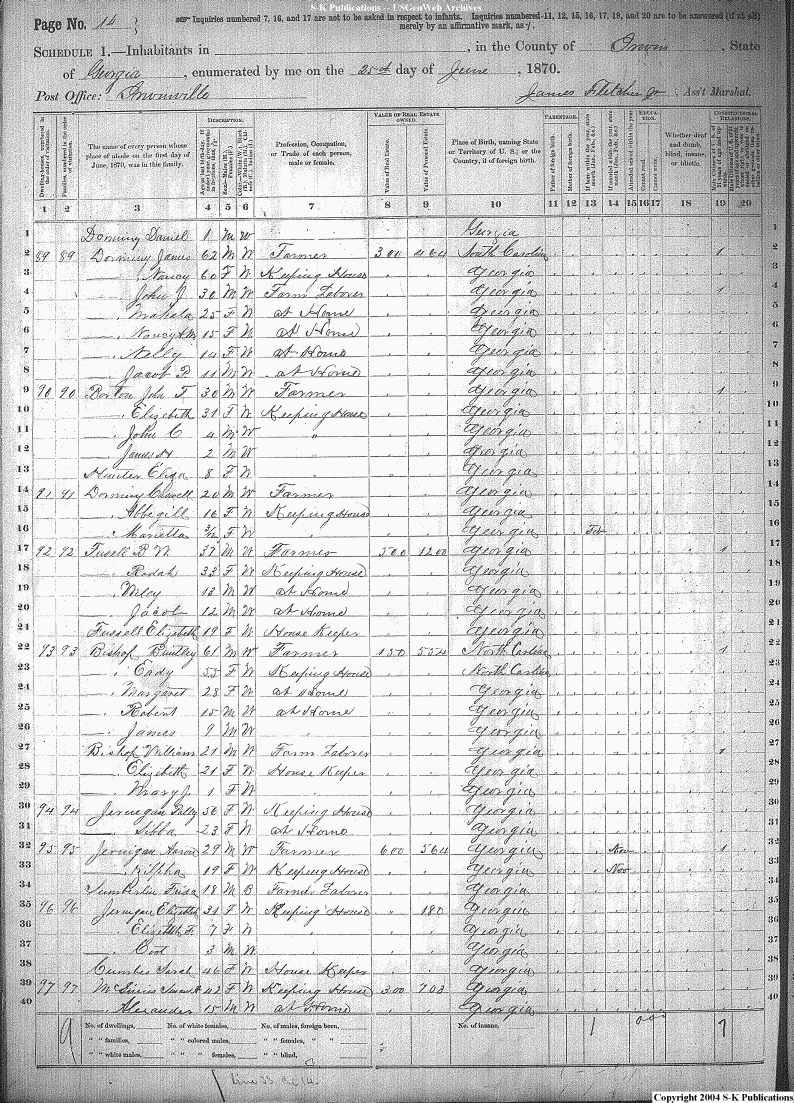 S-K Publications -- USGenWeb Archives
Page No. 14
Inquiries numbered 7, 16, and 17 are not to be asked in respect to infants. Inquiries numbered 11, 12, 15, 16, 17, 19, and 20 are to be answered (if at all) merely by an affirmative mark, as /.
SCHEDULE 1.—Inhabitants in , in the County of Irwin, State
of Georgia, enumerated by me on the 25th day of June, 1870.
Post Office: Irwinville James Fletcher Jr, Ass't Marshal.
DESCRIPTION. VALUE OF REAL ESTATE OWNED. PARENTAGE. EDUCATION. CONSTITUTIONAL RELATIONS.
The name of every person whose place of abode on the first day of June, 1870, was in this family.
Profession, Occupation, or Trade of each person, male or female.
Value of Real Estate.
Value of Personal Estate.
Place of Birth, naming State or Territory of U. S.; or the Country, if of foreign birth.
Father of foreign birth.
Mother of foreign birth.
Whether deaf and dumb, blind, insane, or idiotic.
1 2 3 4 5 6 7 8 9 10 11 12 13 14 15 16 17 18 19 20
1 Dorminy Daniel 1 M W Georgia 1
2 89 89 Dorminy James 62 M W Farmer 300 464 South Carolina 1 2
3 Nancy 60 F W Keeping House Georgia 3
4 John J. 30 M W Farm Laborer Georgia 1 4
5 Mahala 25 F W at Home Georgia 5
6 Nancy A M 15 F W at Home Georgia 6
7 Nelly 14 F W at Home Georgia 7
8 Jacob 11 M W at Home Georgia 8
9 90 90 John T. 30 M W Farmer Georgia 1 9
10 Elizabeth 31 F W Keeping House Georgia 10
11 John C 4 M W " Georgia 11
12 James H 2 M W Georgia 12
13 Hunter Eliza 8 F W " Georgia 13
14 91 91 Dorminy 20 M W Farmer Georgia 14
15 Abbegill 16 F W Keeping House Georgia 15
16 Marietta 3/12 F W Georgia Feb 16
17 92 92 Fussell B W 37 M W Farmer 500 1200 Georgia 1 17
18 Rodah 33 F W Keeping House Georgia 18
19 Wiley 13 M W at Home Georgia 19
20 Jacob 12 M W at Home Georgia 20
21 Fussell Elizabeth 19 F W House Keeper Georgia 21
22 93 93 Bishop 61 M W Farmer 150 554 North Carolina 1 22
23 Eady 55 F W Keeping House North Carolina 23
24 Margaret 28 F W at Home Georgia 24
25 Robert 15 M W at Home Georgia 25
26 James 9 M W Georgia 26
27 Bishop William 21 M W Farm Laborer Georgia 1 27
28 Elizabeth 21 F W House Keeper Georgia 28
29 Mary J 1 F W Georgia 29
30 94 94 Jernigan 56 F W Keeping House Georgia 30
31 Sibba 23 F W at Home Georgia 31
32 95 95 Jernigan Aaron 29 M W Farmer 600 564 Georgia Nov 1 32
33 19 F W Keeping House Georgia Nov 33
34 18 M B Farm Laborer Georgia 34
35 96 96 Jernigan Elizabeth 31 F W Keeping House " 180 Georgia 35
36 Elizabeth F. 7 F W Georgia 36
37 3 M W Georgia 37
38 Sarah 46 F W House Keeper Georgia 38
39 97 97 42 F W Keeping House 300 703 Georgia 39
40 Alexander 15 M W at Home Georgia 40
9 No. of dwellings, No. of white females, No. of males, foreign born, No. of insane, 1 7
" " families, " " colored males, " " females, " "
" " white males, " " " females, " " blind,
Copyright 2004 S-K Publications